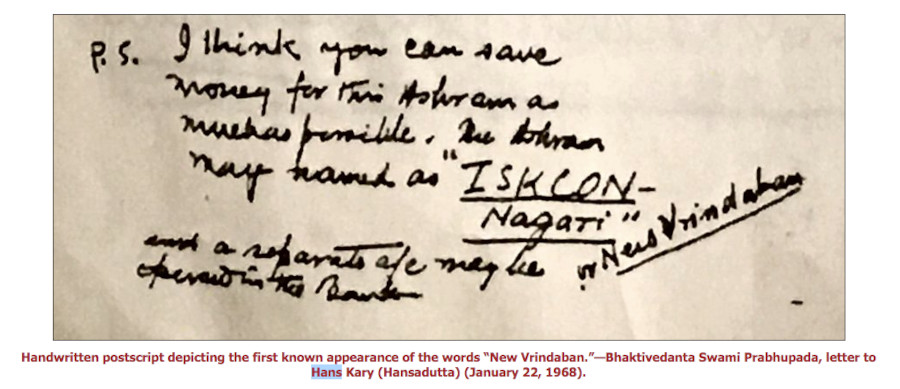 P.S. I think you can save
money for this Ashram as
much as possible. The Ashram
may named as "ISKCON-
Nagari" or New Vrindaban
and a separate a/c may be
opened in the Bank
Handwritten postscript depicting the first known appearance of the words “New Vrindaban.”—Bhaktivedanta Swami Prabhupada, letter to
Hans Kary (Hansadutta) (January 22, 1968).